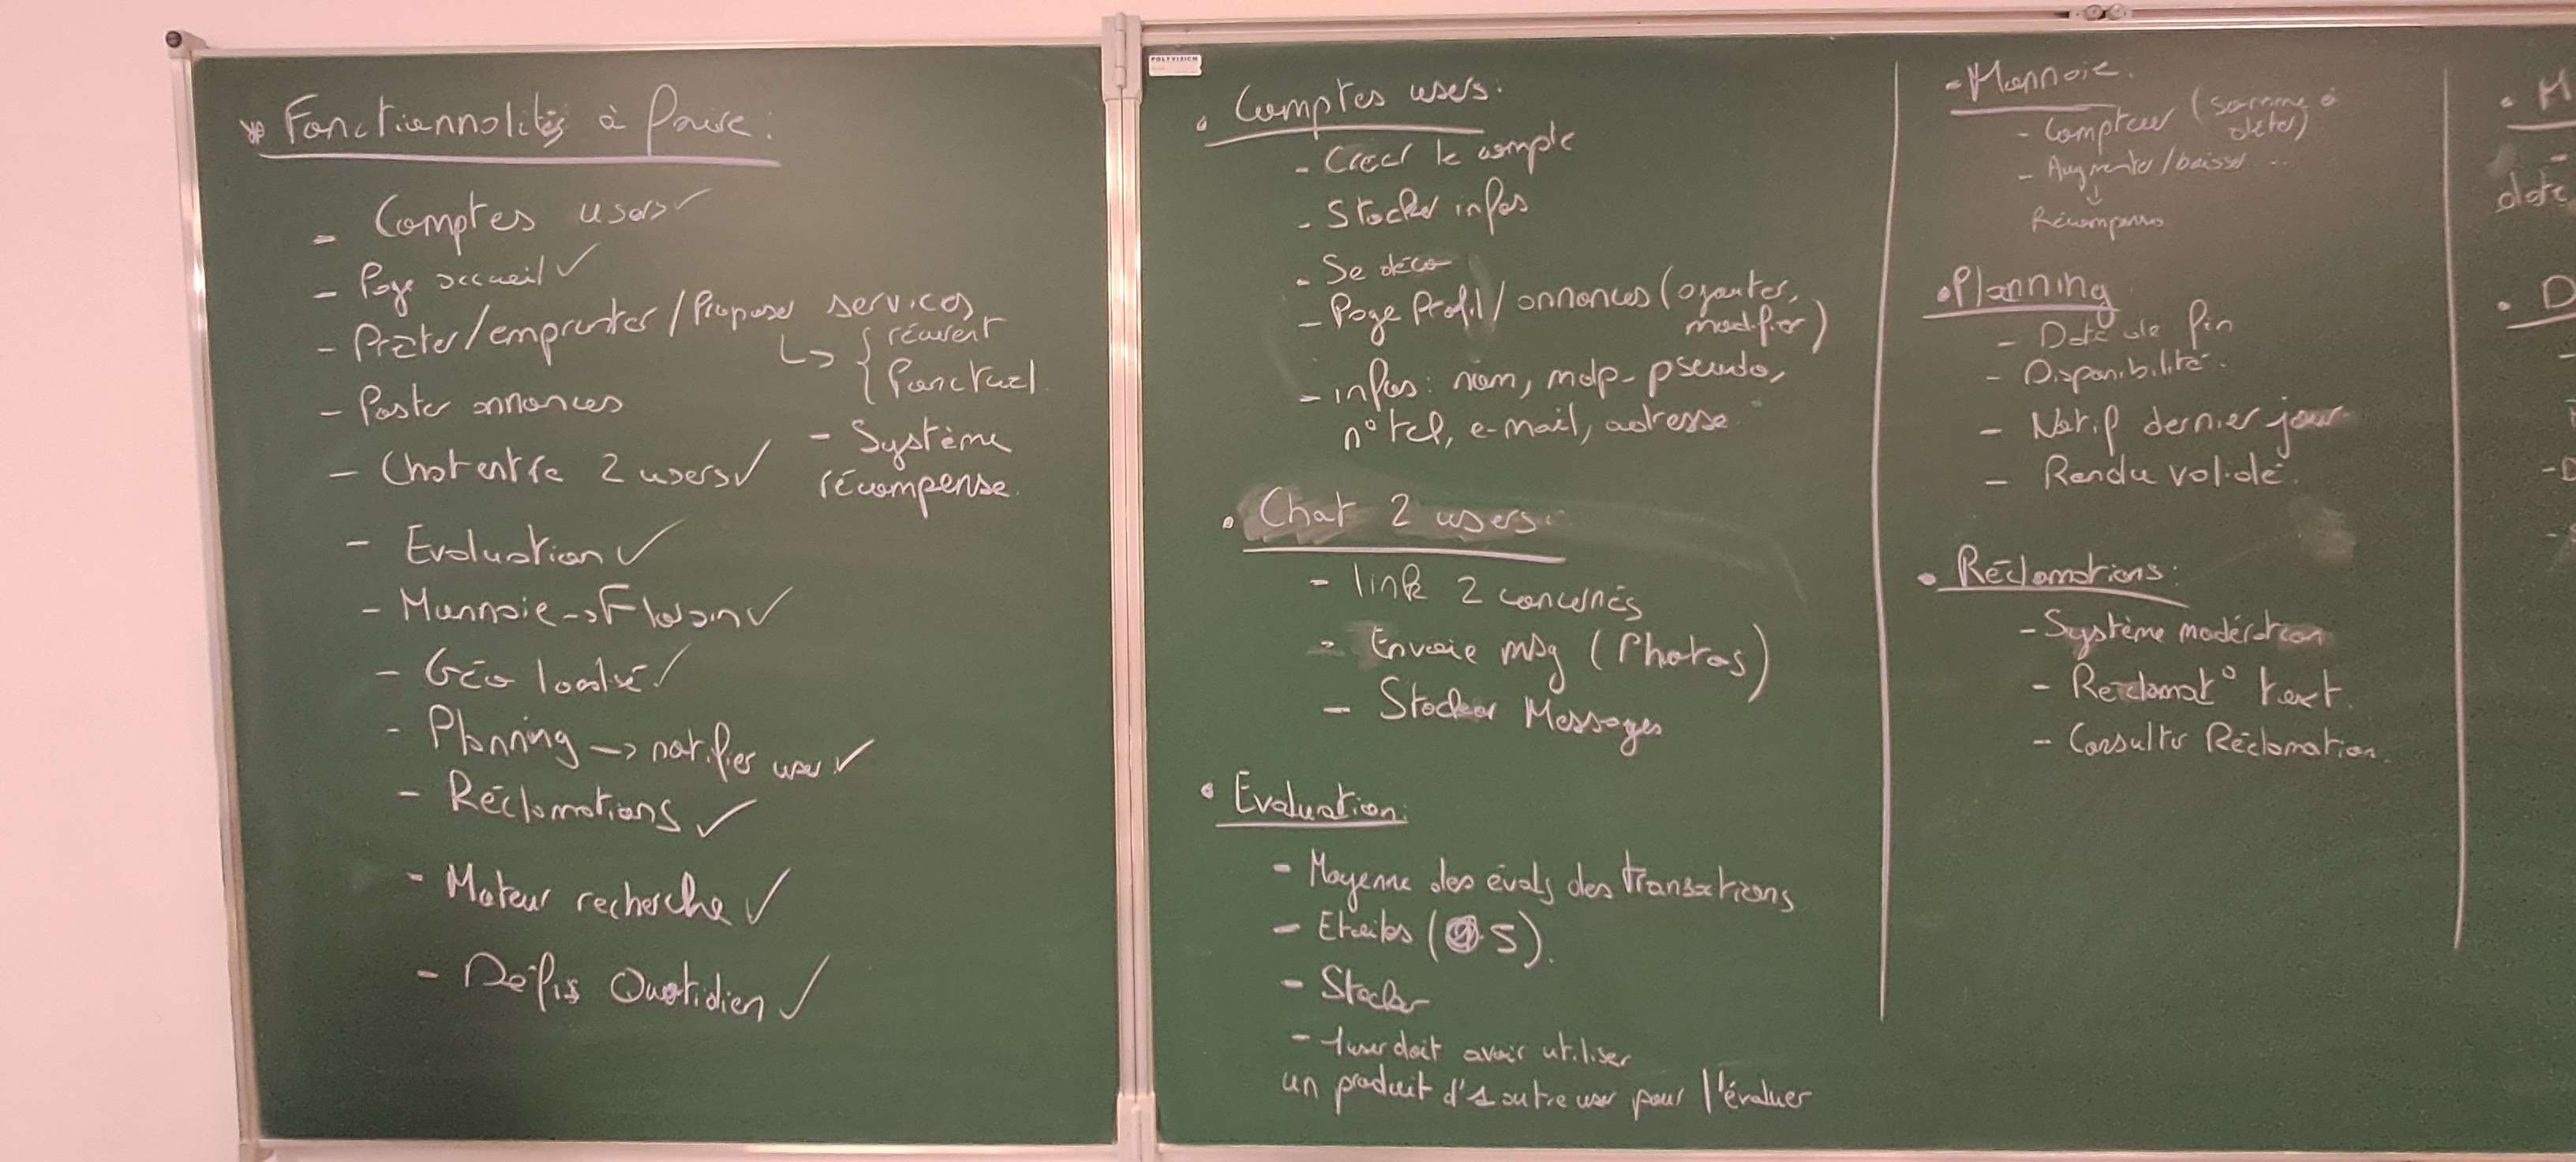 * Fonctionnalités à faire :
- Comptes users ✓
- Page accueil ✓
- Prêter/emprunter/Proposer services
↳ { récurent
{ Ponctuel.
- Poster annonces
- Système
récompense.
- Chat entre 2 users ✓
- Evaluation ✓
- Monnoie -> Florain ✓
- Géo localisé ✓
- Planning -> notifier user ✓
- Réclamations ✓
- Moteur recherche ✓
- Défis Quotidien ✓
POLYVISION
• Comptes users :
- Créer le compte
- Stocker infos
- Se déco
- Page Profil / annonces (ajouter,
modifier)
- infos : nom, mdp, pseudo,
n° tel, e-mail, adresse.
• Chat 2 users :
- link 2 concernés
- Envoie msg (Photos)
- Stocker Messages
• Evaluation :
- Moyenne des évals des transactions
- Etoiles ( 5).
- Stocker
- 1 user doit avoir utiliser
un produit d'1 autre user pour l'évaluer
• Monnoie.
- Compteur (somme à
déter)
- Augmenter/baisser ...
↓
Récompenses
• Planning
- Date de fin
- Disponibilité.
- Notif dernier jour
- Rendu validé.
• Réclamations :
- Système modération
- Réclamat° text.
- Consulter Réclamation.
• M
-
• D
-